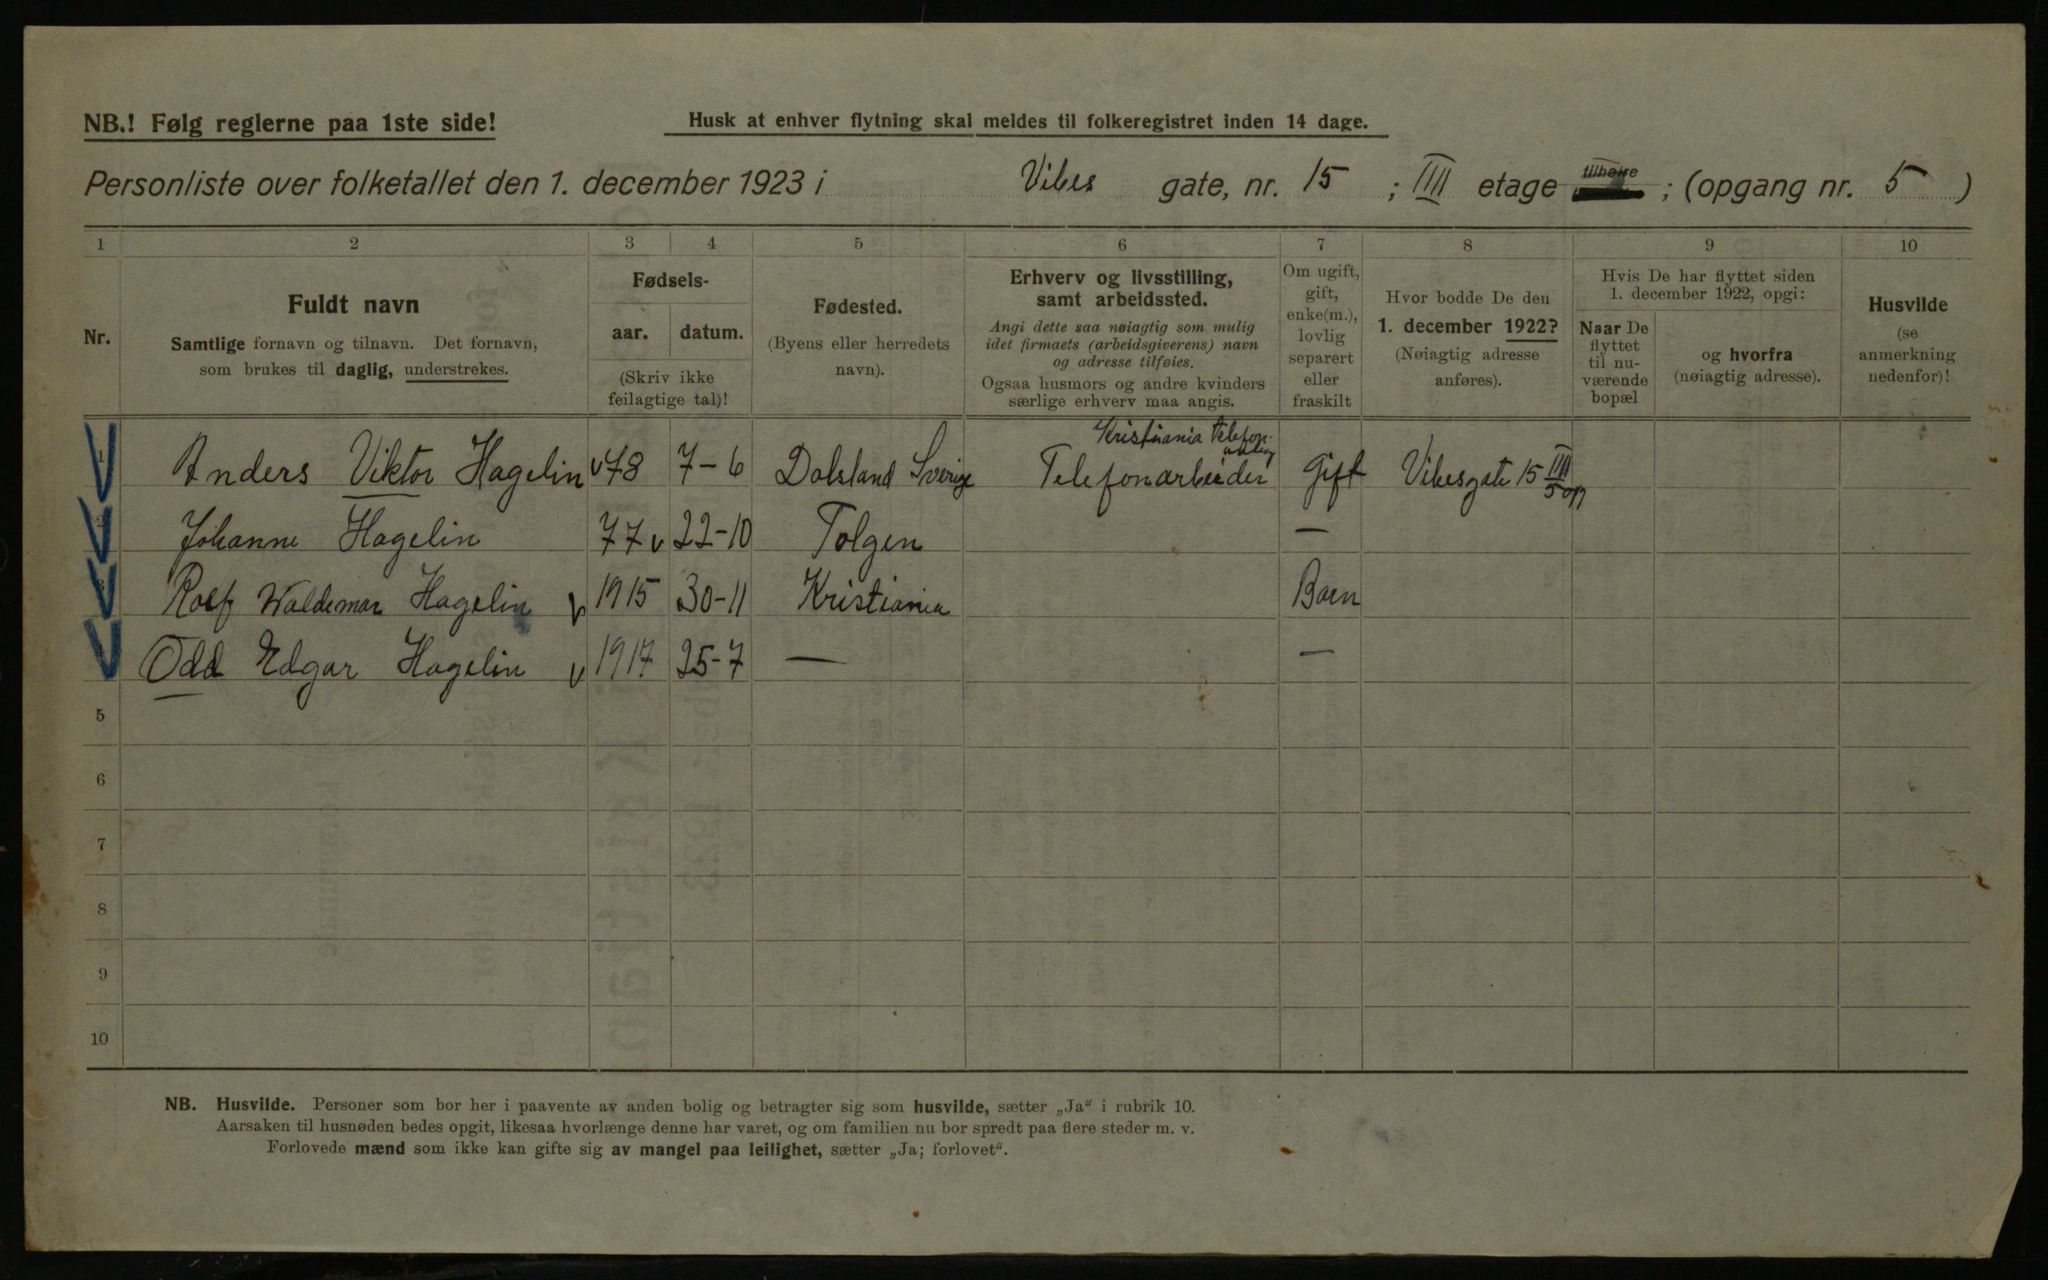 NB.! Følg reglerne paa 1ste side! Husk at enhver flytning skal meldes til folkeregistret inden 14 dage.
Personliste over folketallet den 1. december 1923 i Vibes gate, nr. 15 ; IIII etage tilhøire ; (opgang nr. 5 )
1 2 3 4 5 6 7 8 9 10
Nr.
Fuldt navn
Samtlige fornavn og tilnavn. Det fornavn,
som brukes til daglig, understrekes.
Fødsels-
aar. datum.
(Skriv ikke
feilagtige tal)!
Fødested.
(Byens eller herredets
navn).
Erhverv og livsstilling,
samt arbeidssted.
Angi dette saa nøiagtig som mulig
idet firmaets (arbeidsgiverens) navn
og adresse tilføies.
Ogsaa husmors og andre kvinders
særlige erhverv maa angis.
Om ugift,
gift,
enke(m.),
lovlig
separert
eller
fraskilt
Hvor bodde De den
1. december 1922?
(Nøiagtig adresse
anføres).
Hvis De har flyttet siden
1. december 1922, opgi:
Naar De
flyttet
til nu-
værende
bopæl
og hvorfra
(nøiagtig adresse).
Husvilde
(se
anmerkning
nedenfor)!
Kristiania Telefon-
1 Anders Viktor Hagelin 78 7-6 Dalsland Sverige Telefonarbeider Gift Vibesgate 15 IIII 5 op
2 Johanne Hagelin 77 22-10 Tolgen —
3 Rolf Waldemar Hagelin 1915 30-11 Kristiania Barn
Odd Edgar Hagelin 1917 25-7 — —
5
6
7
8
9
10
NB. Husvilde. Personer som bor her i paavente av anden bolig og betragter sig som husvilde, sætter „Ja“ i rubrik 10.
Aarsaken til husnøden bedes opgit, likesaa hvorlænge denne har varet, og om familien nu bor spredt paa flere steder m. v.
Forlovede mænd som ikke kan gifte sig av mangel paa leilighet, sætter „Ja; forlovet“.